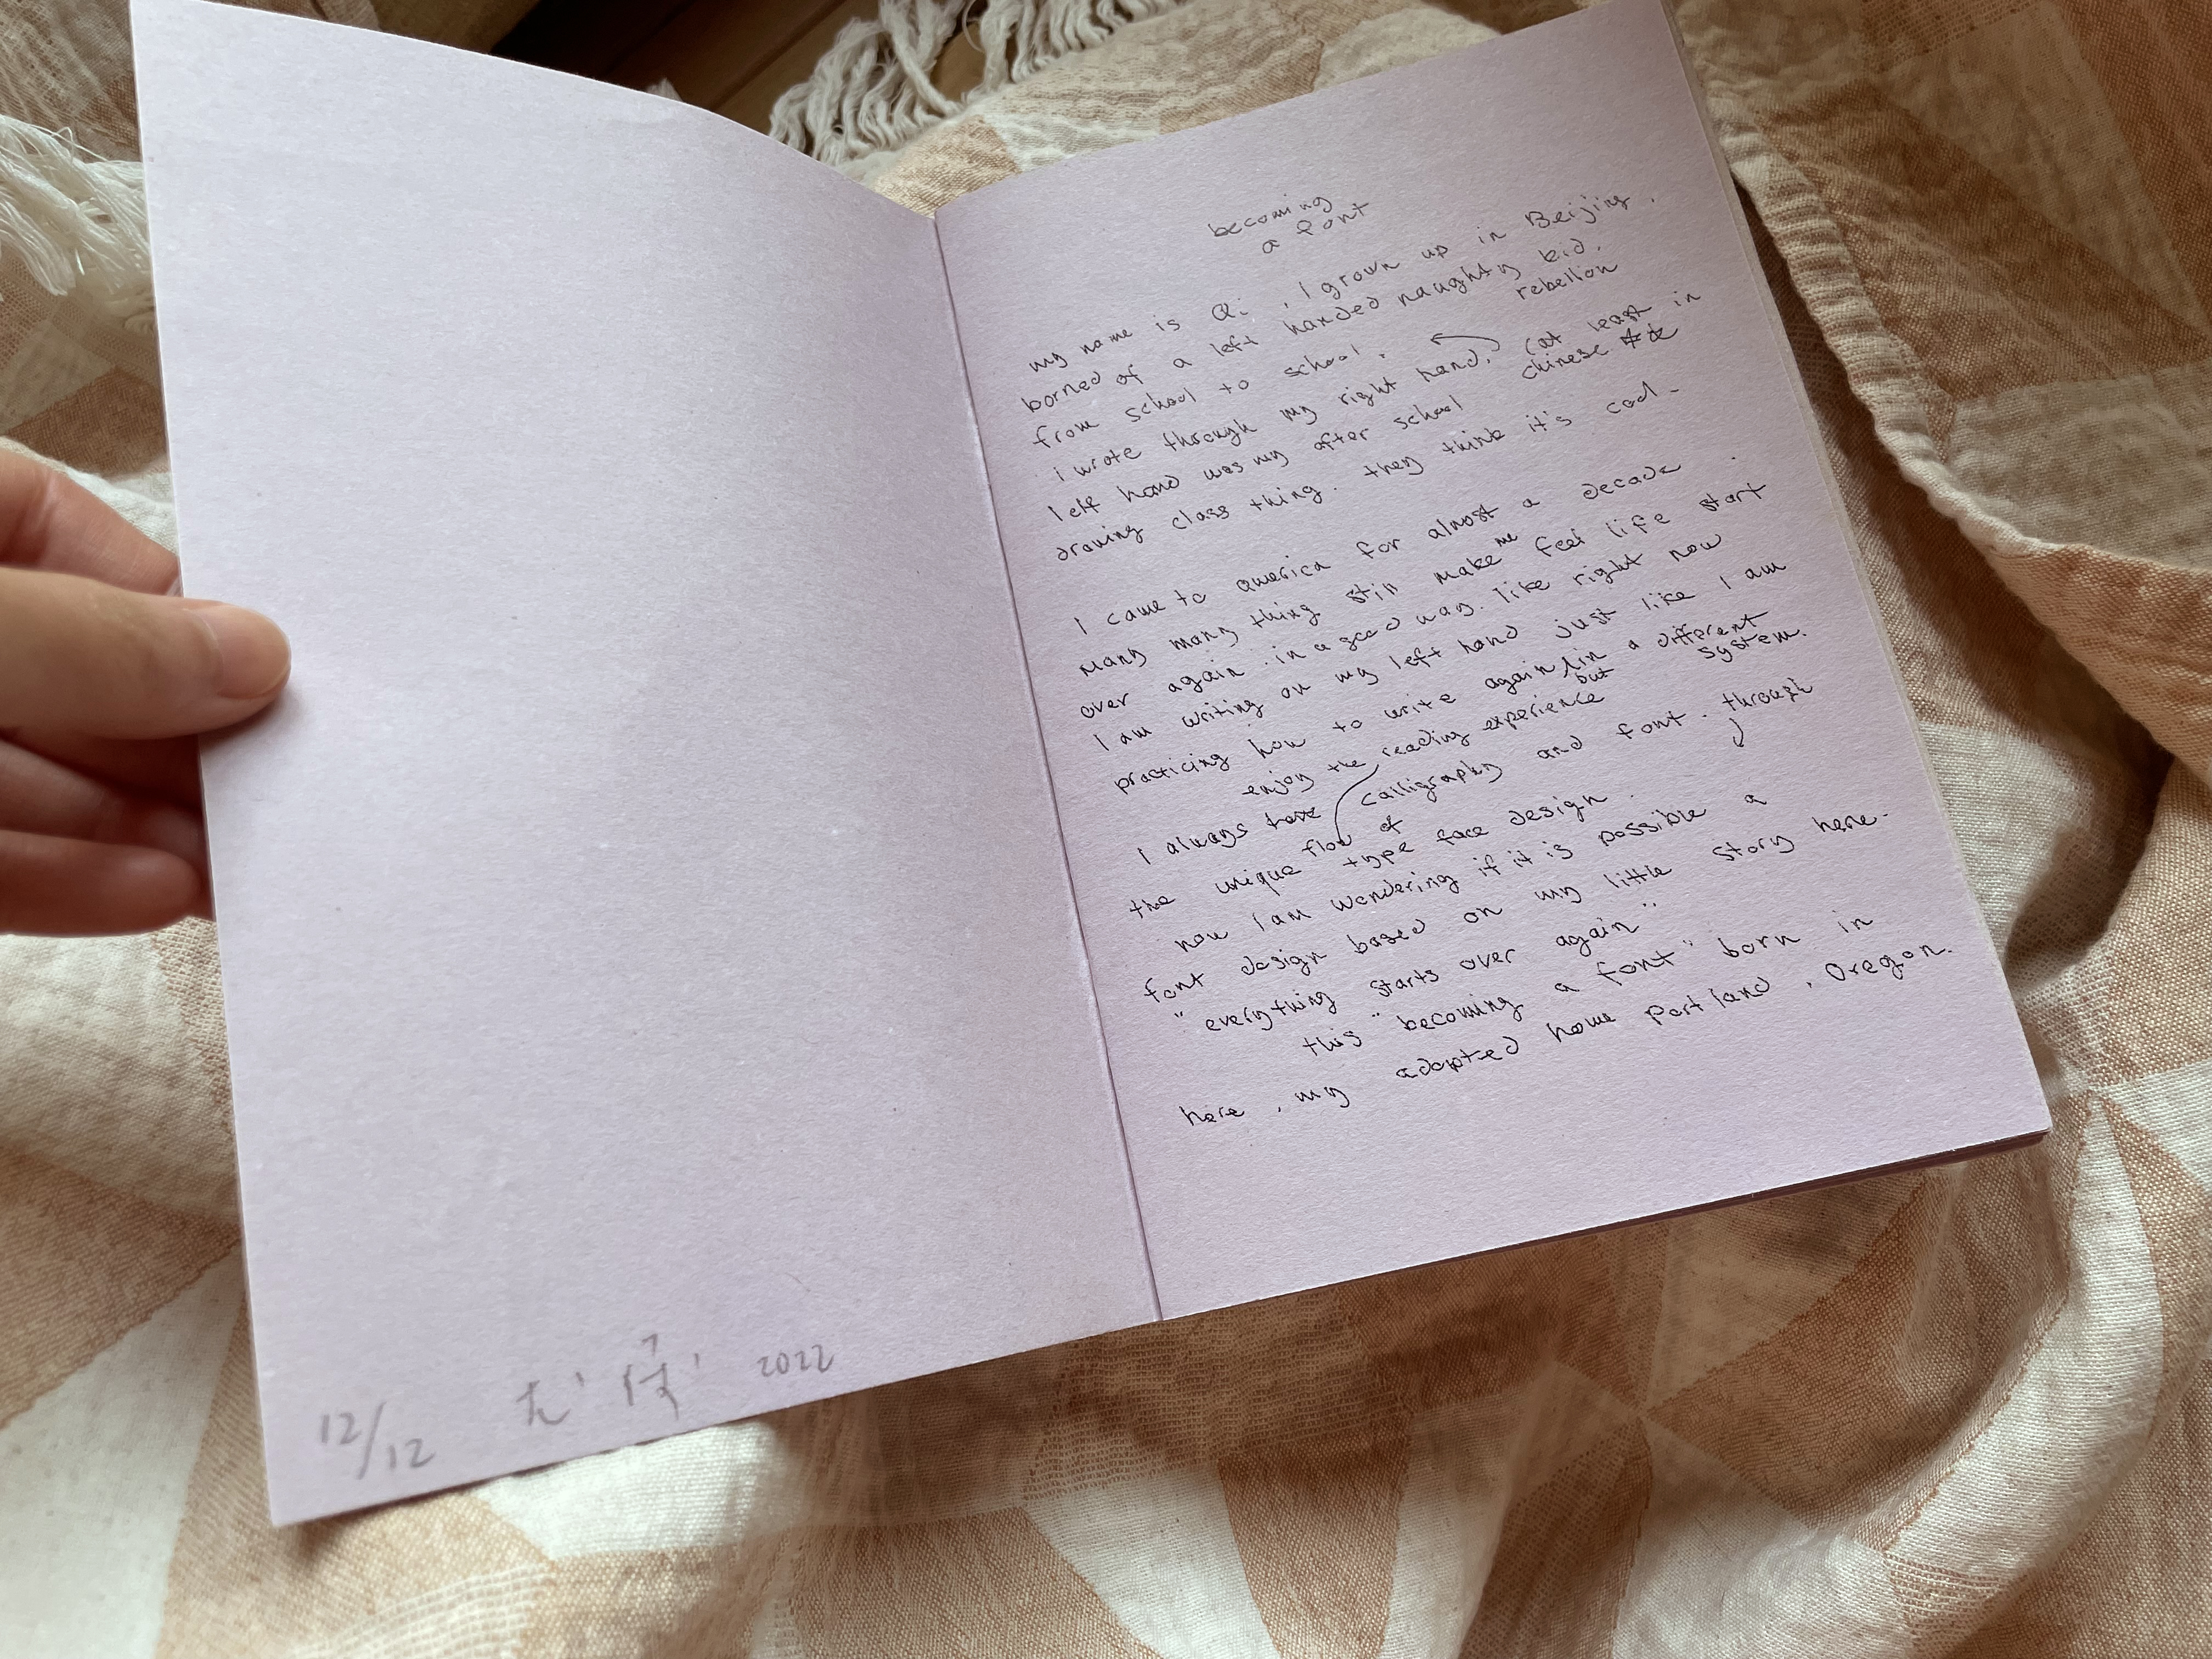 12/12 2022
becoming
a font
my name is Qi , I grown up in Beijing,
borned of a left handed naughty kid.
from school to school. rebellion
i wrote through my right hand. (at least in
left hand was my after school chinese
drawing class thing. they think it's cool.
I came to america for almost a decade.
many many thing still make me feel life start
over again. in a good way. like right now
I am writing on my left hand just like I am
practicing how to write again in a different
but system.
enjoy the reading experience
I always calligraphy and font. through
the unique flow of
type face design.
now I am wondering if it is possible a
font design based on my little story here.
"everything starts over again"
this "becoming a font" born in
here, my adopted home Portland, Oregon.